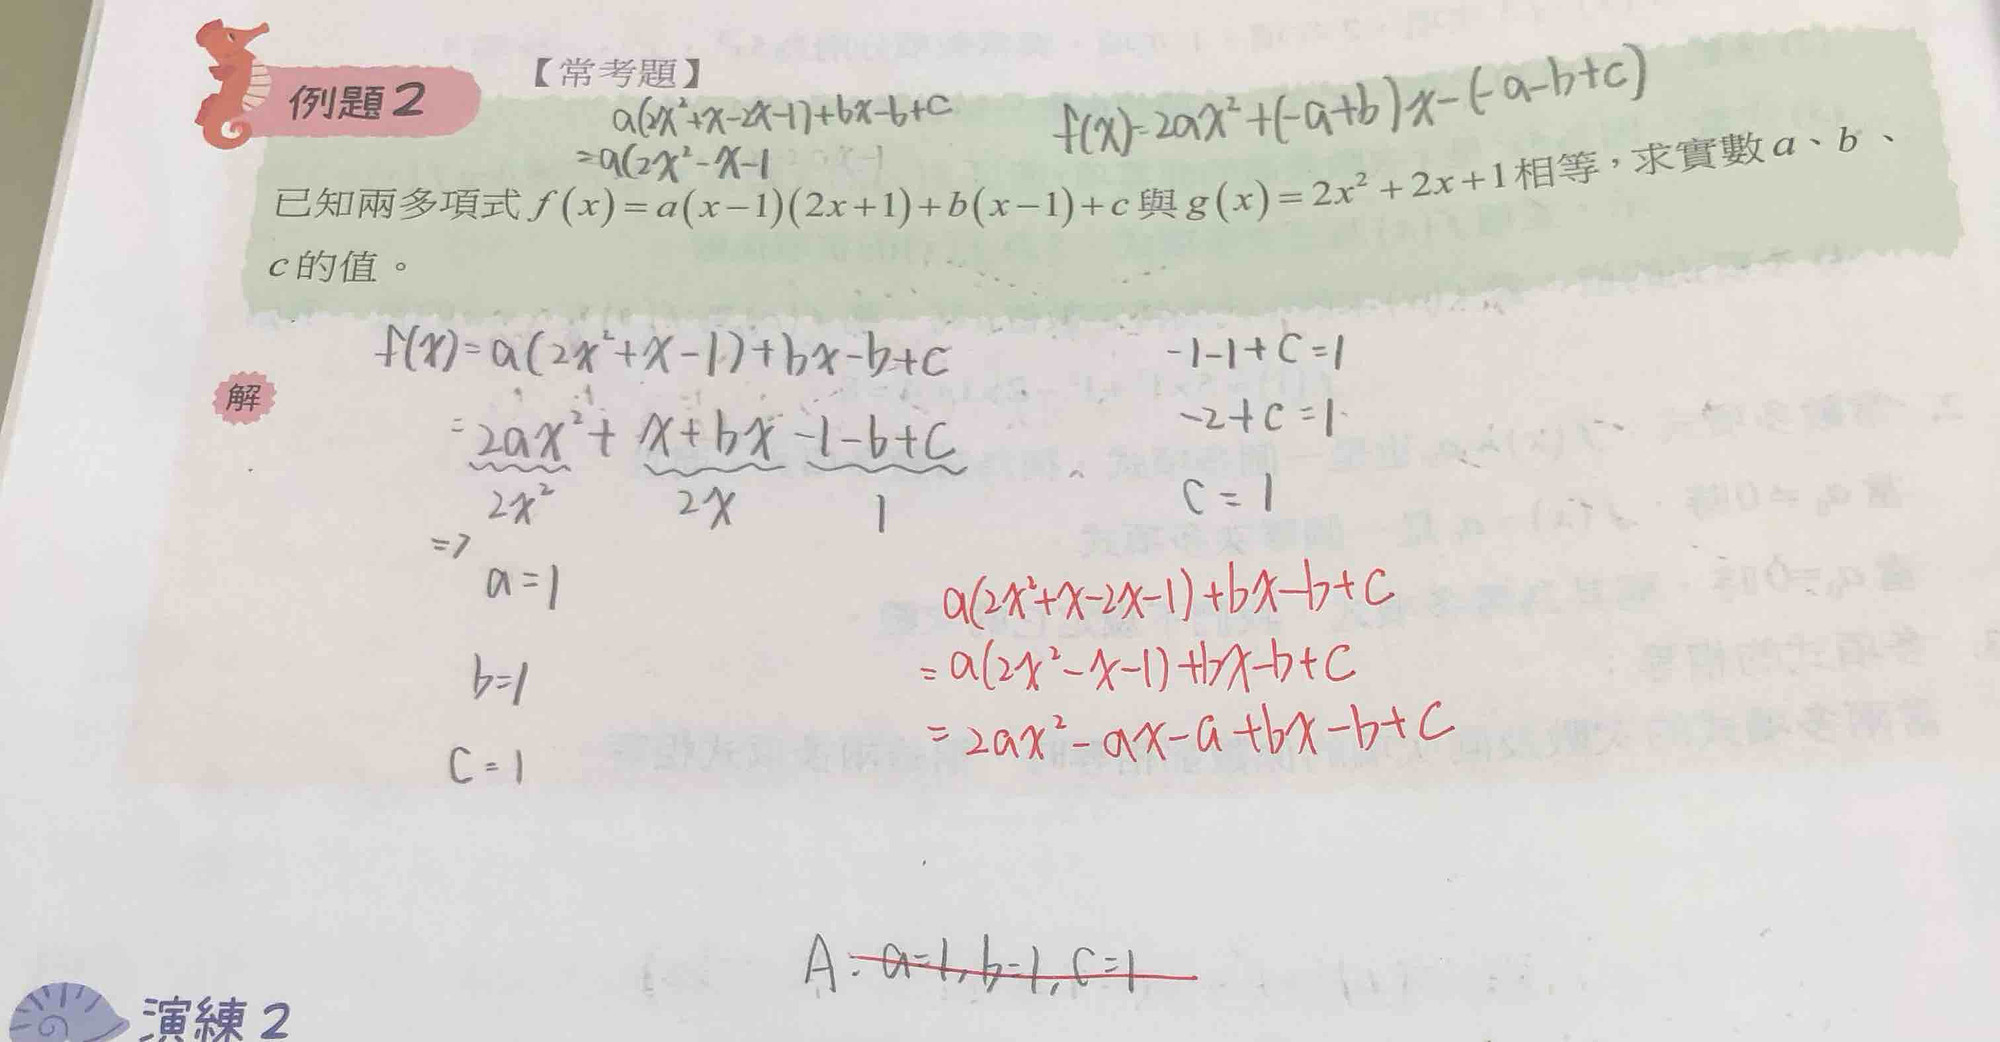 【常考題】
例題2
a(2x²+x-2x-1)+bx-b+c
=a(2x²-x-1
f(x)=2ax²+(-a+b)x-(-a-b+c)
已知兩多項式 f(x)=a(x-1)(2x+1)+b(x-1)+c 與 g(x)=2x²+2x+1 相等，求實數 a、b、
c 的值。
解
f(x)=a(2x²+x-1)+bx-b+c
=2ax²+x+bx-1-b+c
2x² 2x 1
=>
a=1
b=1
c=1
-1-1+c=1
-2+c=1
c=1
a(2x²+x-2x-1)+bx-b+c
=a(2x²-x-1)+bx-b+c
=2ax²-ax-a+bx-b+c
A:a=1,b=1,c=1
演練2